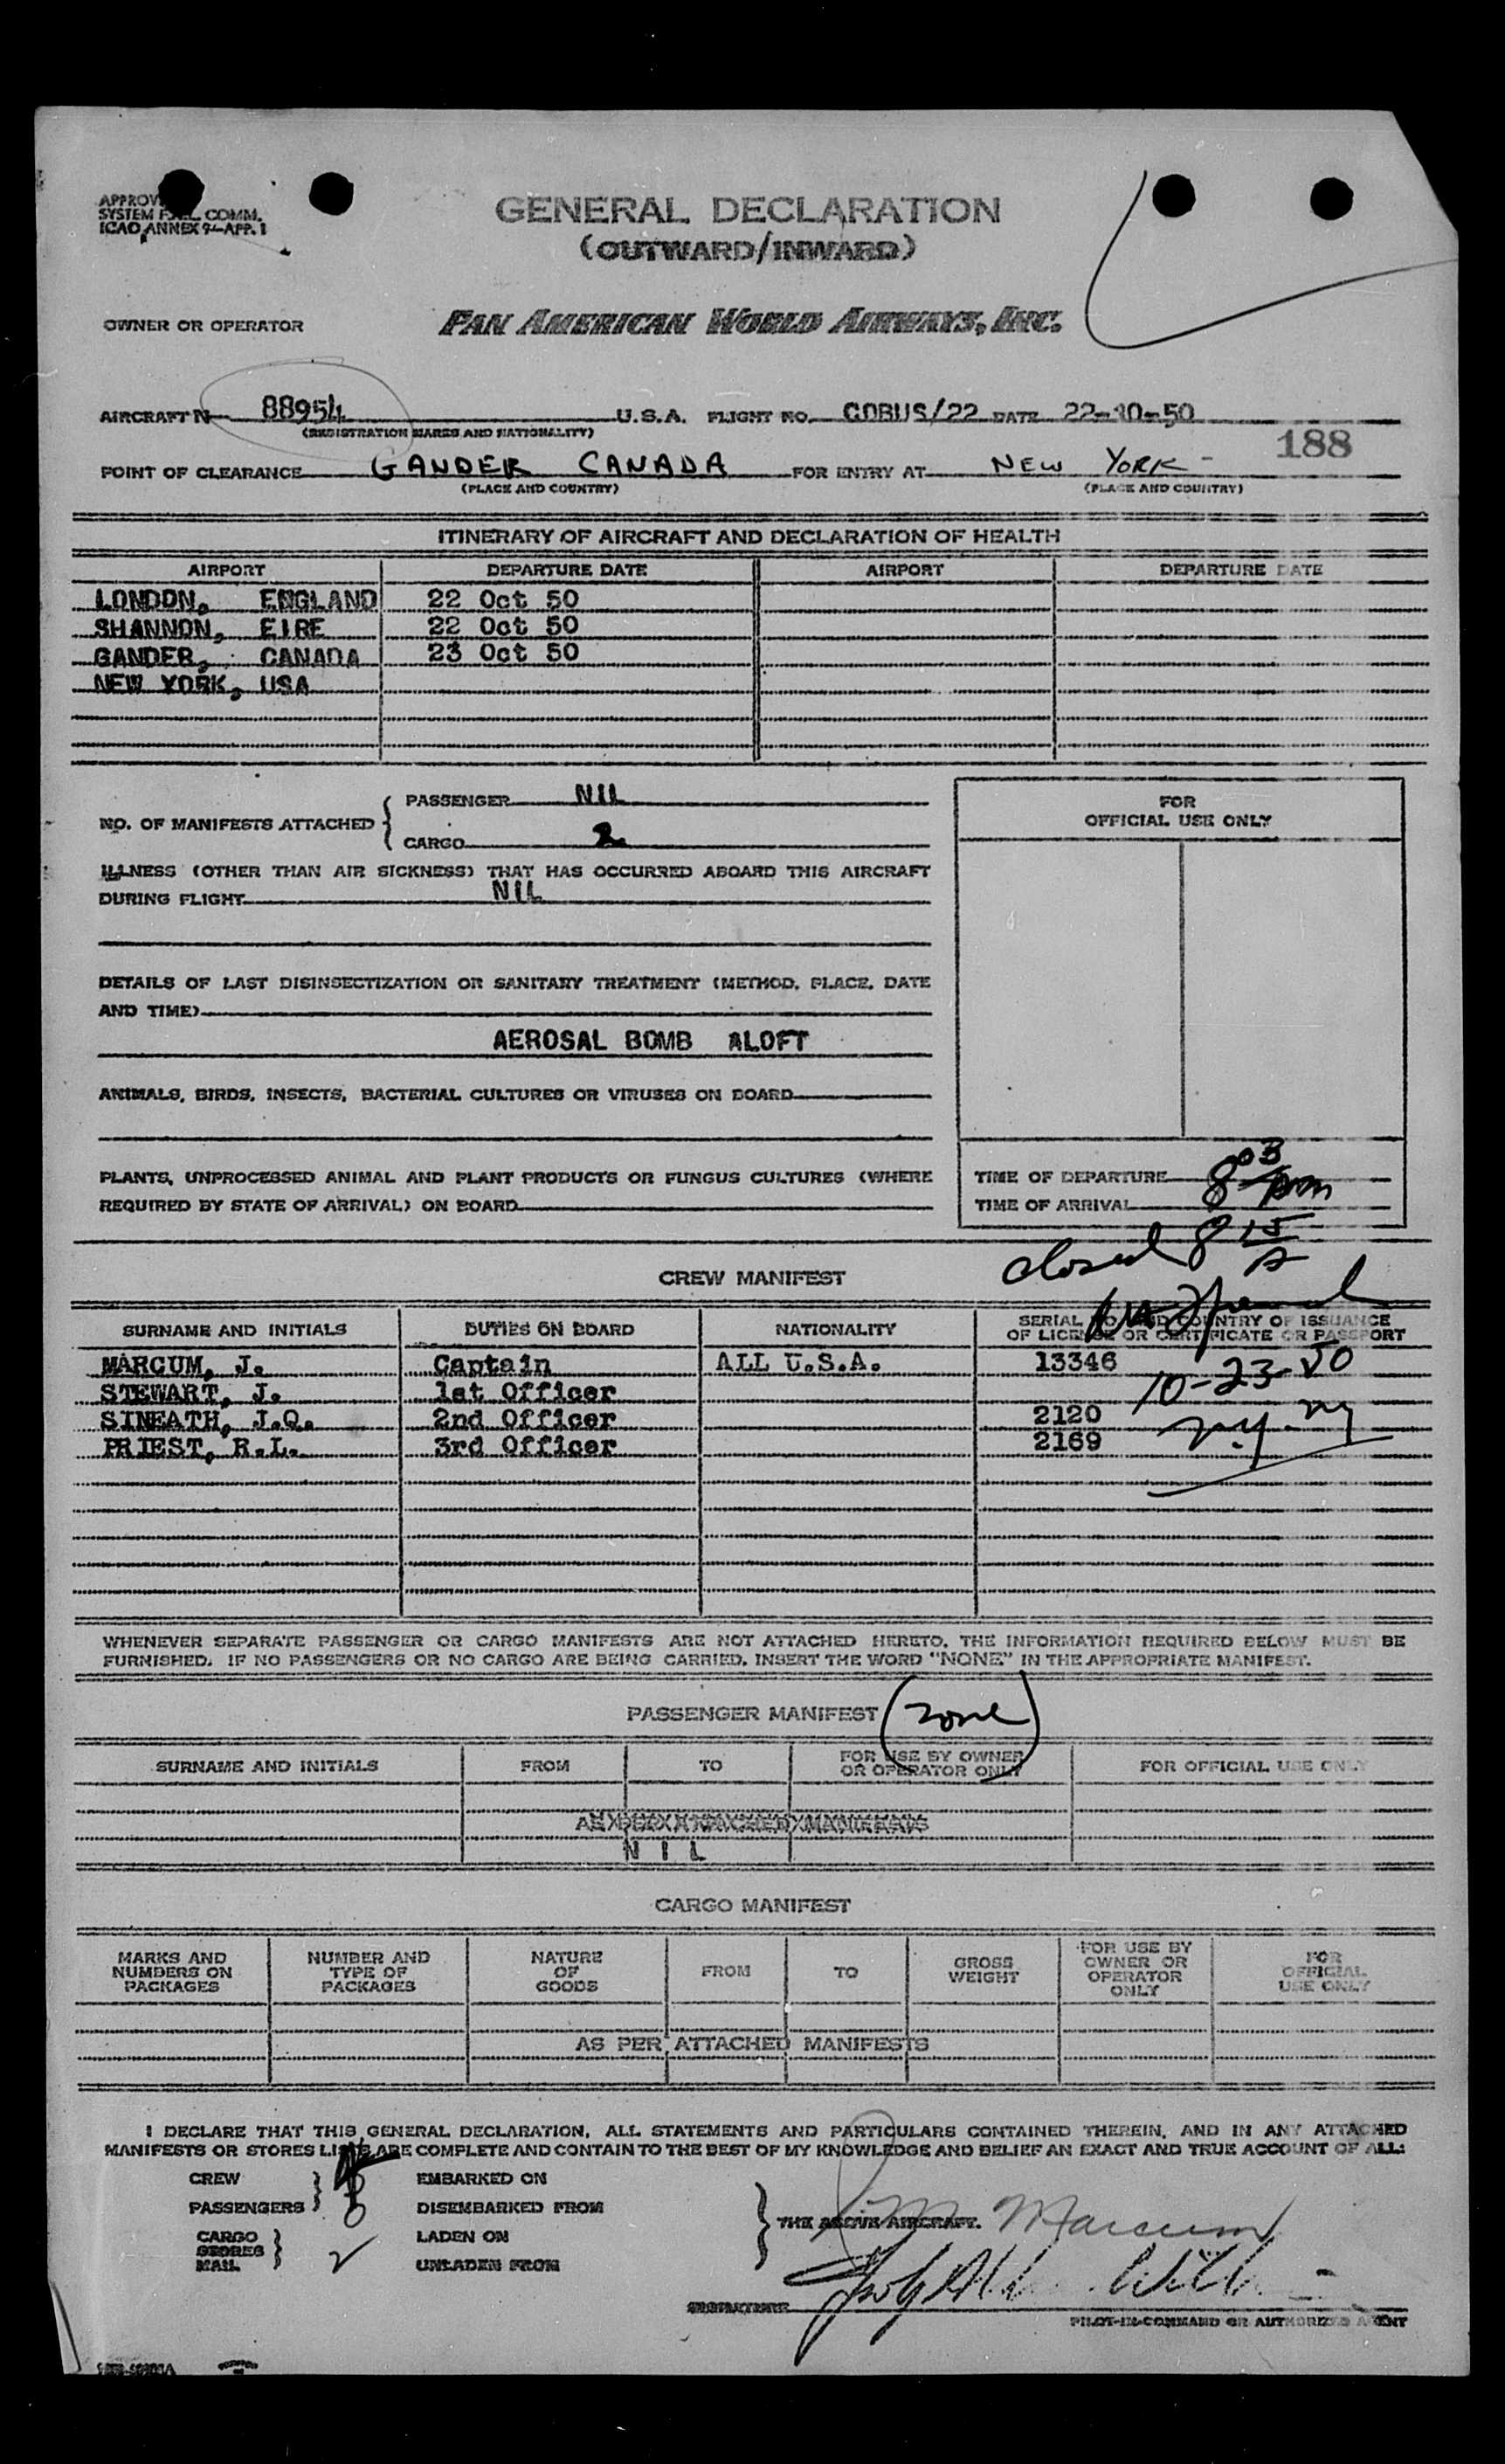 APPROV
SYSTEM F COMM.
ICAO ANNEX 9-APP. 1
GENERAL DECLARATION
(OUTWARD/INWARD)
OWNER OR OPERATOR PAN AMERICAN WORLD AIRWAYS, INC.
AIRCRAFT N 88954 U.S.A. FLIGHT NO. COBUS/22 DATE 22-10-50
(REGISTRATION MARKS AND NATIONALITY)
188
POINT OF CLEARANCE GANDER CANADA FOR ENTRY AT NEW YORK -
(PLACE AND COUNTRY) (PLACE AND COUNTRY)
ITINERARY OF AIRCRAFT AND DECLARATION OF HEALTH
AIRPORT DEPARTURE DATE AIRPORT DEPARTURE DATE
LONDON, ENGLAND 22 Oct 50
SHANNON, EIRE 22 Oct 50
GANDER, CANADA 23 Oct 50
NEW YORK, USA
NO. OF MANIFESTS ATTACHED { PASSENGER NIL
CARGO 2
FOR
OFFICIAL USE ONLY
ILLNESS (OTHER THAN AIR SICKNESS) THAT HAS OCCURRED ABOARD THIS AIRCRAFT
DURING FLIGHT NIL
DETAILS OF LAST DISINSECTIZATION OR SANITARY TREATMENT (METHOD, PLACE, DATE
AND TIME)
AEROSAL BOMB ALOFT
ANIMALS, BIRDS, INSECTS, BACTERIAL CULTURES OR VIRUSES ON BOARD
PLANTS, UNPROCESSED ANIMAL AND PLANT PRODUCTS OR FUNGUS CULTURES (WHERE
REQUIRED BY STATE OF ARRIVAL) ON BOARD
TIME OF DEPARTURE 8 03
TIME OF ARRIVAL
closed 8 15
CREW MANIFEST
SURNAME AND INITIALS DUTIES ON BOARD NATIONALITY SERIAL NO. AND COUNTRY OF ISSUANCE
OF LICENSE OR CERTIFICATE OR PASSPORT
MARCUM, J. Captain ALL U.S.A. 13346
10-23-50
STEWART, J. 1st Officer
SINEATH, J.O. 2nd Officer 2120
PRIEST, R.L. 3rd Officer 2169
WHENEVER SEPARATE PASSENGER OR CARGO MANIFESTS ARE NOT ATTACHED HERETO, THE INFORMATION REQUIRED BELOW MUST BE
FURNISHED. IF NO PASSENGERS OR NO CARGO ARE BEING CARRIED, INSERT THE WORD "NONE" IN THE APPROPRIATE MANIFEST.
PASSENGER MANIFEST (none)
SURNAME AND INITIALS FROM TO FOR USE BY OWNER
OR OPERATOR ONLY FOR OFFICIAL USE ONLY
AS PER ATTACHED MANIFESTS
NIL
CARGO MANIFEST
MARKS AND
NUMBERS ON
PACKAGES
NUMBER AND
TYPE OF
PACKAGES
NATURE
OF
GOODS
FROM
TO
GROSS
WEIGHT
FOR USE BY
OWNER OR
OPERATOR
ONLY
FOR
OFFICIAL
USE ONLY
AS PER ATTACHED MANIFESTS
I DECLARE THAT THIS GENERAL DECLARATION, ALL STATEMENTS AND PARTICULARS CONTAINED THEREIN, AND IN ANY ATTACHED
MANIFESTS OR STORES LISTS ARE COMPLETE AND CONTAIN TO THE BEST OF MY KNOWLEDGE AND BELIEF AN EXACT AND TRUE ACCOUNT OF ALL:
CREW EMBARKED ON
PASSENGERS DISEMBARKED FROM
CARGO LADEN ON
STORES
MAIL UNLADEN FROM
THE ABOVE AIRCRAFT. Marcum
SIGNATURE
PILOT-IN-COMMAND OR AUTHORIZED AGENT